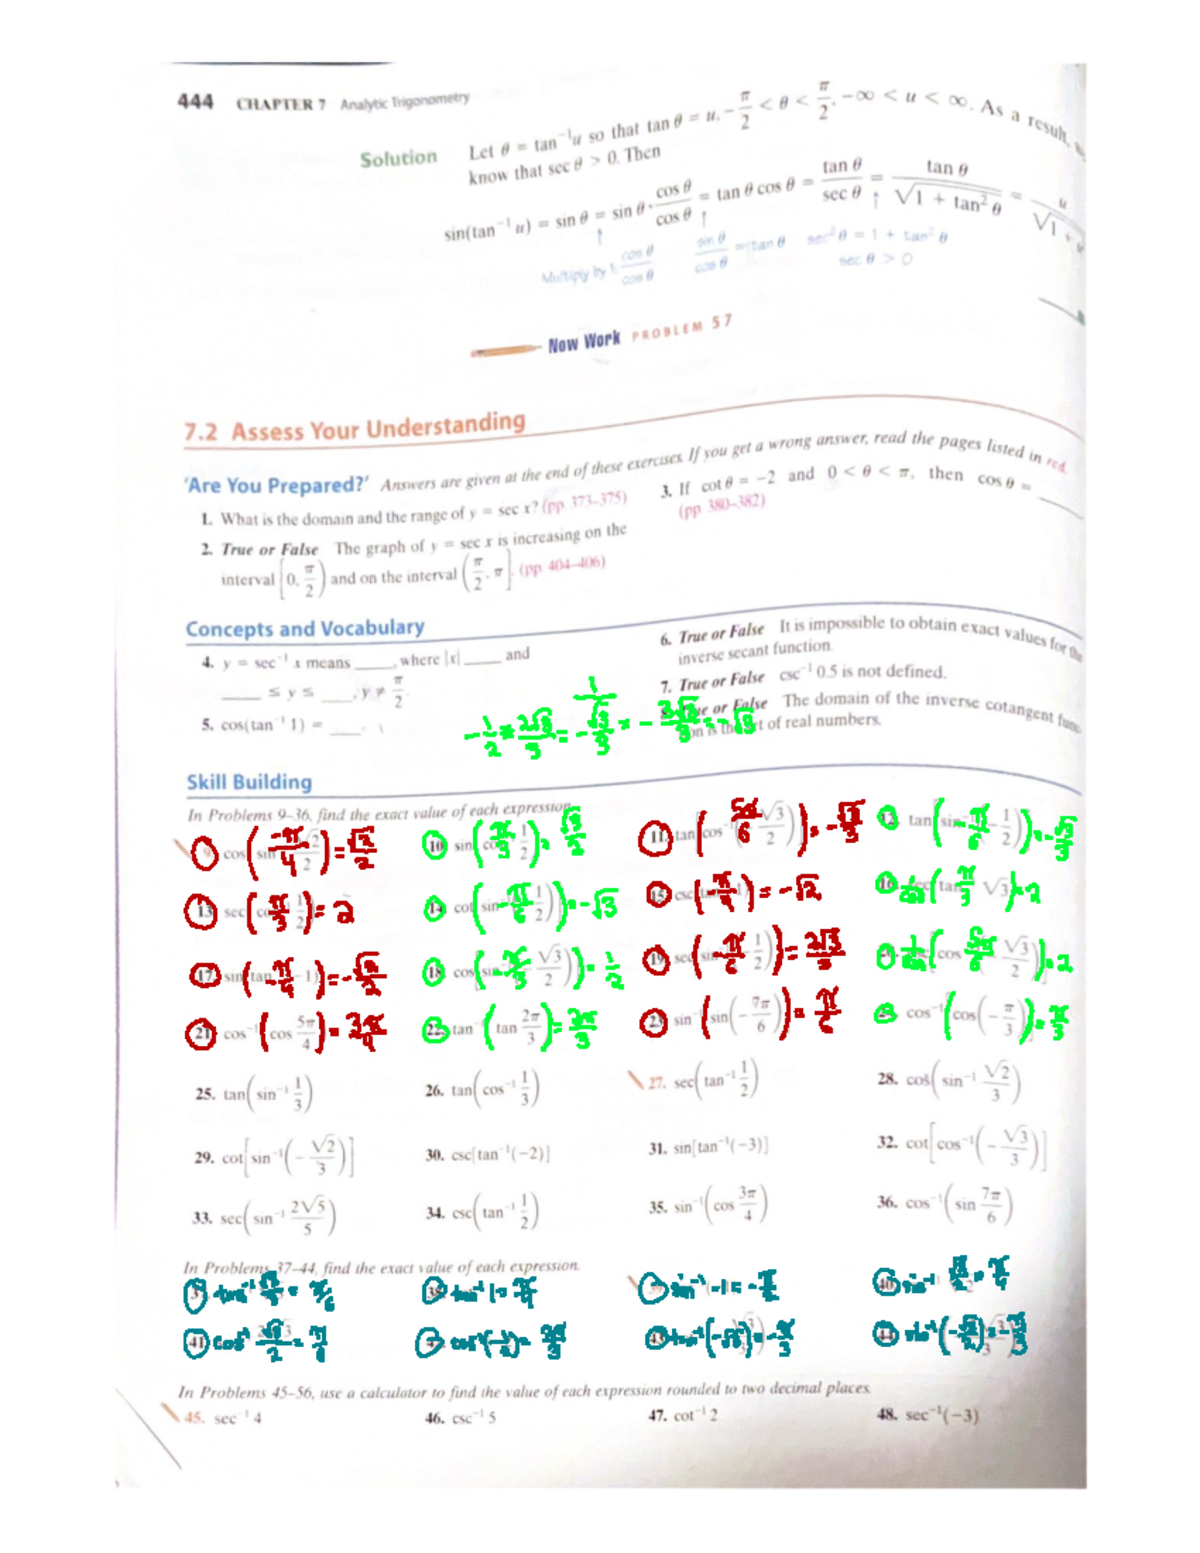 444 CHAPTER 7 Analytic Trigonometry
Solution Let θ = tan⁻¹u so that tan θ = u, −π/2 < θ < π/2, −∞ < u < ∞. As a result,
know that sec θ > 0. Then
sin(tan⁻¹ u) = sin θ = sin θ · cos θ/cos θ = tan θ cos θ = tan θ/sec θ = tan θ/√(1 + tan² θ) = u/√(1 +
Multiply by 1: cos θ/cos θ sin θ/cos θ = tan θ sec² θ = 1 + tan² θ
sec θ > 0
Now Work PROBLEM 57
7.2 Assess Your Understanding
'Are You Prepared?' Answers are given at the end of these exercises. If you get a wrong answer, read the pages listed in red.
1. What is the domain and the range of y = sec x? (pp. 373–375)
2. True or False The graph of y = sec x is increasing on the
interval [0, π/2) and on the interval (π/2, π]. (pp. 404–406)
3. If cot θ = −2 and 0 < θ < π, then cos θ = ____
(pp. 380–382)
Concepts and Vocabulary
4. y = sec⁻¹ x means ____, where |x| ____ and
____ ≤ y ≤ ____, y ≠ π/2.
5. cos(tan⁻¹ 1) = ____.
6. True or False It is impossible to obtain exact values for the
inverse secant function.
7. True or False csc⁻¹ 0.5 is not defined.
or False The domain of the inverse cotangent func
of real numbers.
Skill Building
In Problems 9–36, find the exact value of each expression.
(−π/4) = √2/2
10. sin (π/3) = √3/2
11. tan (5π/6) = −√3/3
tan (−π/6) = −√3/3
13. sec (π/3) = 2
14. cot (−π/6) = −√3
15. csc (−π/4) = −√2
(π/3) = 2
17. sin (−π/4) = −√2/2
18. cos (−π/3) = 1/2
19. sec (−π/6) = 2√3/3
21. cos⁻¹ (cos 5π/4) = 3π/4
22. tan (tan 2π/3)
23. sin (sin(−7π/6)) = π/6
cos⁻¹ (cos(−π/3)) = π/3
25. tan(sin⁻¹ 1/3)
26. tan(cos⁻¹ 1/3)
27. sec(tan⁻¹ 1/2)
28. cos(sin⁻¹ √2/3)
29. cot[sin⁻¹(−√2/3)]
30. csc[tan⁻¹(−2)]
31. sin[tan⁻¹(−3)]
32. cot[cos⁻¹(−√3/3)]
33. sec(sin⁻¹ 2√5/5)
34. csc(tan⁻¹ 1/2)
35. sin⁻¹(cos 3π/4)
36. cos⁻¹(sin 7π/6)
In Problems 37–44, find the exact value of each expression.
tan⁻¹ √3/3 = π/6
tan⁻¹ 1 = π/4
sin⁻¹ −1 = −π/2
40. sin⁻¹ √2/2 = π/4
41. cos⁻¹ √3/2 = π/6
cos⁻¹(−1/2) = 2π/3
43. tan⁻¹(−√3) = −π/3
44. sin⁻¹(−√3/2) = −π/3
In Problems 45–56, use a calculator to find the value of each expression rounded to two decimal places.
45. sec⁻¹ 4
46. csc⁻¹ 5
47. cot⁻¹ 2
48. sec⁻¹(−3)